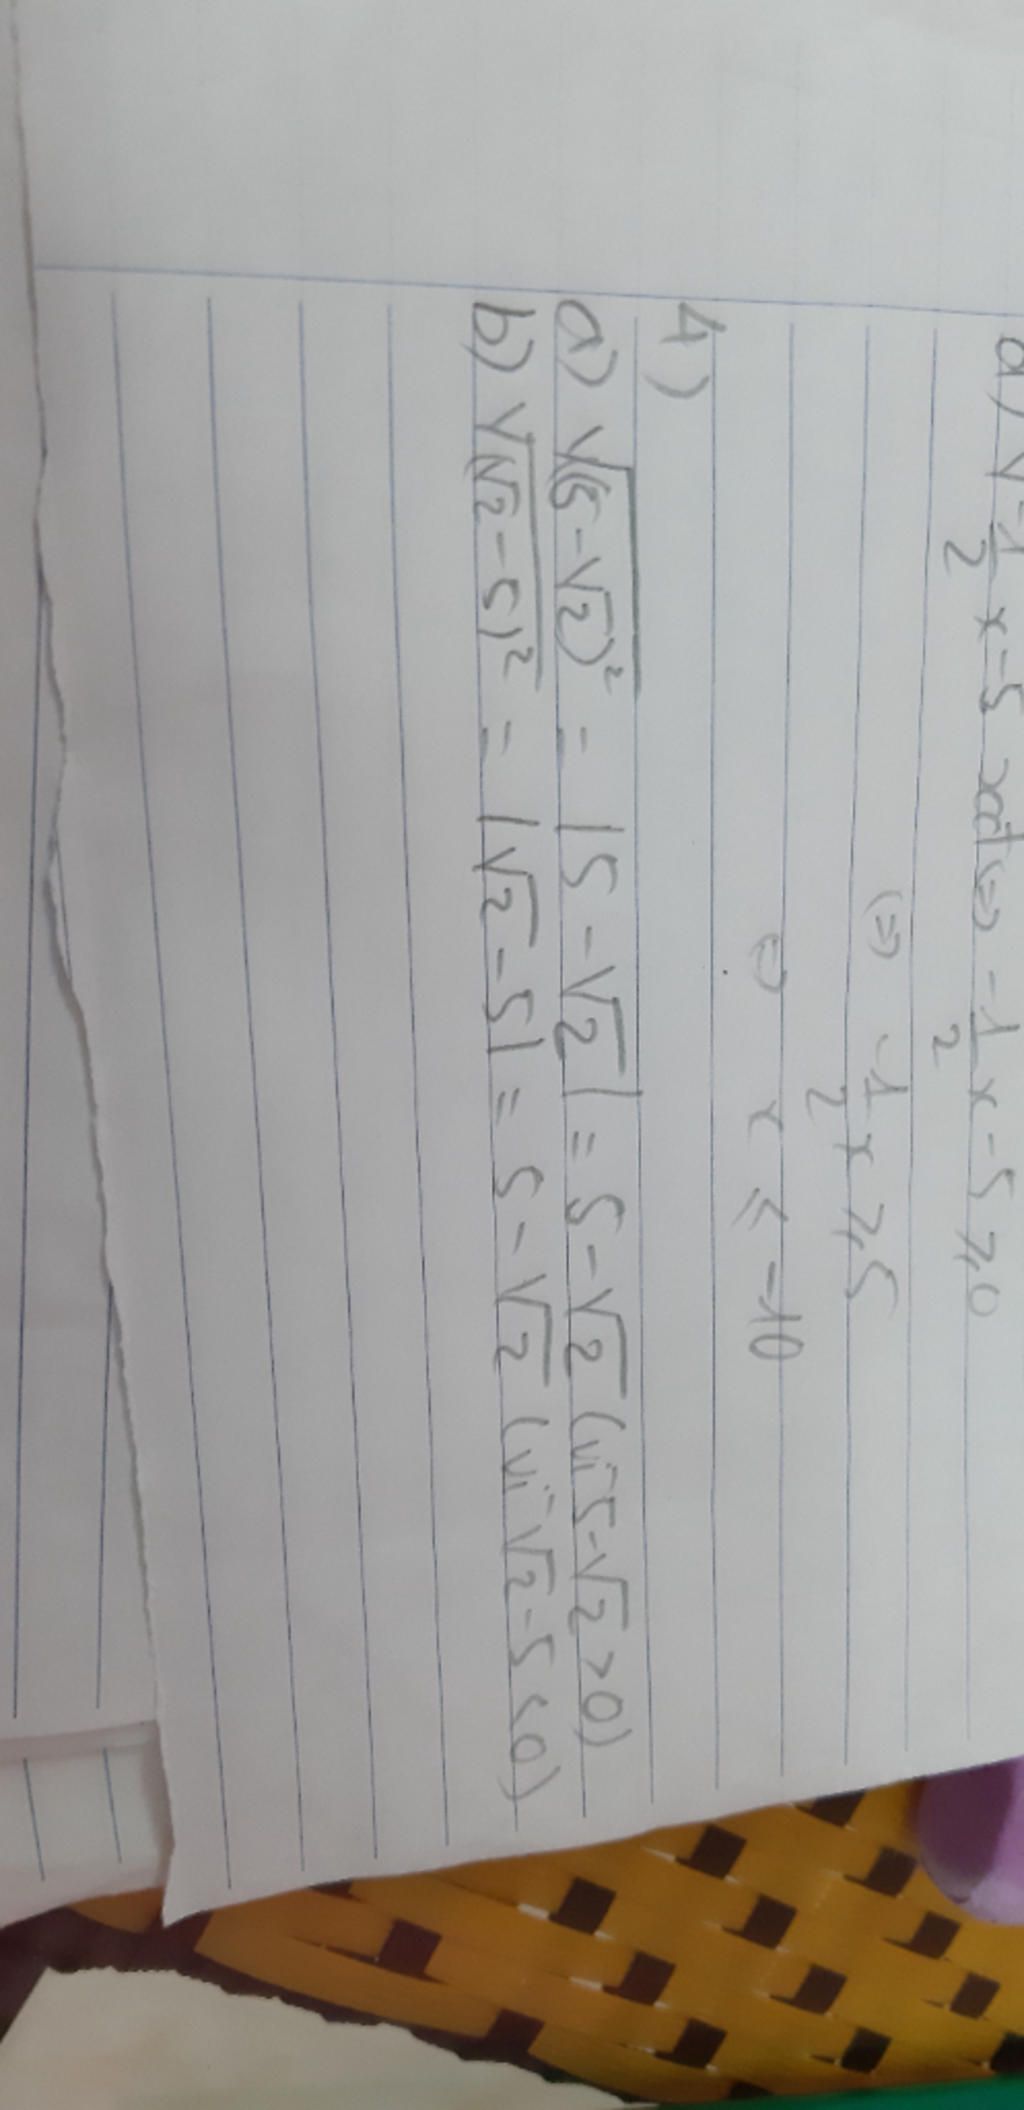 a) √-1/2 x - 5 xđ <=> -1/2 x - 5 ≥ 0
<=> -1/2 x ≥ 5
<=> x ≤ -10
4)
a) √(5-√2)² = |5-√2| = 5-√2 (vì 5-√2>0)
b) √(√2-5)² = |√2-5| = 5-√2 (vì √2-5<0)